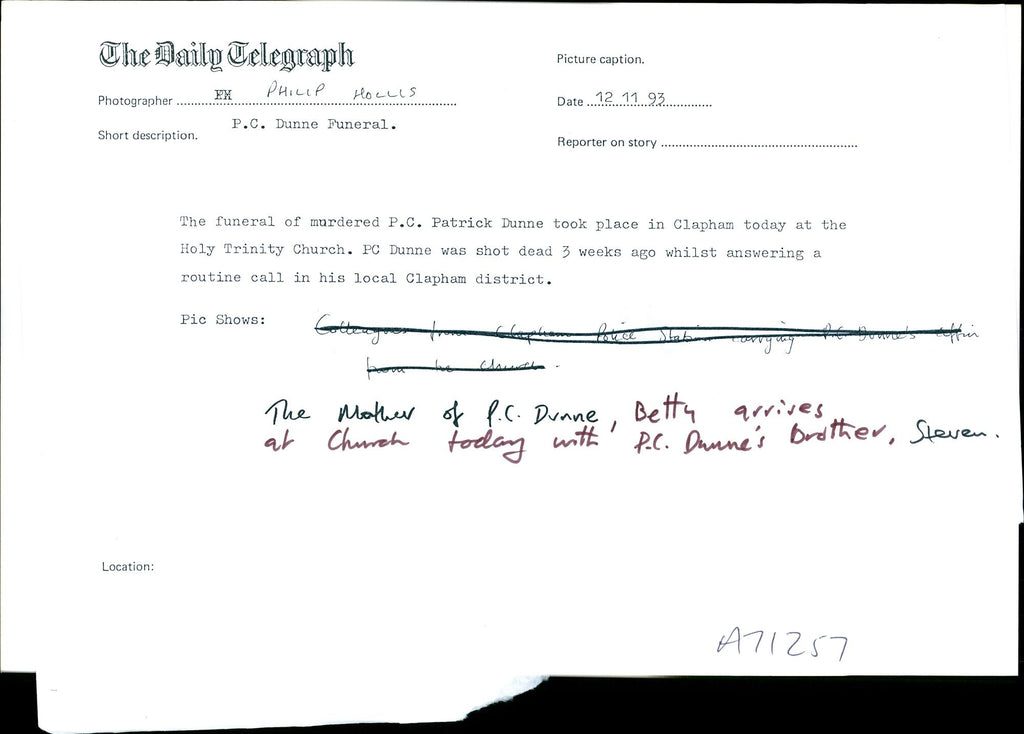 The Daily Telegraph
Picture caption.
Photographer FM PHILIP HOLLIS
Date 12 11 93
Short description. P.C. Dunne Funeral.
Reporter on story
The funeral of murdered P.C. Patrick Dunne took place in Clapham today at the
Holy Trinity Church. PC Dunne was shot dead 3 weeks ago whilst answering a
routine call in his local Clapham district.
Pic Shows: Colleagues from Clapham Police Station carrying P.C Dunne's coffin
from the church.
The Mother of P.C. Dunne, Betty arrives
at Church today with P.C. Dunne's brother, Steven.
Location:
A71257